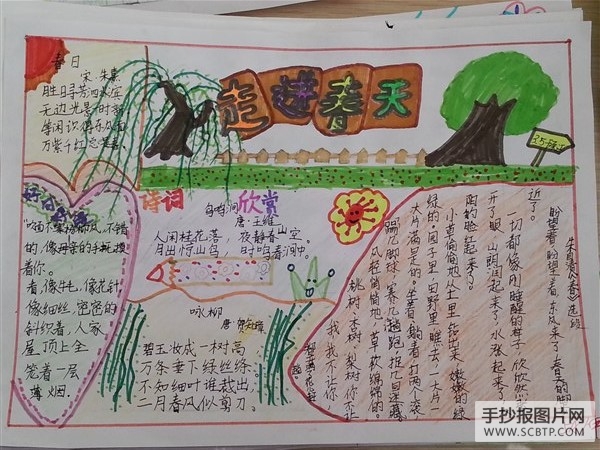 走进春天
春日
宋 朱熹
胜日寻芳泗水滨
无边光景时新
等闲识得东风面
万紫千红总是春
好词
诗词
欣赏
鸟鸣涧
唐·王维
人闲桂花落，夜静春山空。
月出惊山鸟，时鸣春涧中。
咏柳
唐
碧玉妆成一树高
万条垂下绿丝绦。
不知细叶谁裁出
二月春风似剪刀。
"吹面不寒杨柳风"，不错
的，像母亲的手抚摸
着你。
看，像牛毛，像花针，
像细丝，密密的
斜织着，人家
屋顶上全
笼着一层
薄烟。
朱自清《春》选段
盼望着，盼望着，东风来了，春天的脚
近了。
一切都像刚睡醒的样子，欣欣然
开了眼。山朗润起来了，水涨起来了，
的脸红起来了。
小草偷偷地从土里钻出来，嫩嫩的，绿
绿的。园子里，田野里，瞧去，一大片一
大片满是的。坐着，躺着，打两个滚，
踢几脚球，赛几趟跑，捉几回迷藏。
风轻悄悄地，草软绵绵的。
桃树、杏树、梨树，你不让
我，我不让你，
都开满了花
手抄报图片网
WWW.SCBTP.COM